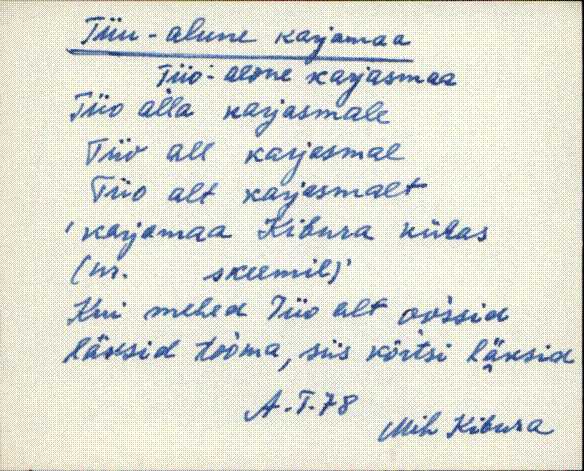 Tüü-alune karjamaa
Tüö-alone karjasmaa
Tüö alla karjasmale
Tüö all karjasmal
Tüö alt karjasmalt
'karjamaa Kibura külas
(nr. skeemil)'
Kui mehed Tüo alt oössid
läksid tooma, siis kõrtsi läksid
A.T.78
Mih Kibura